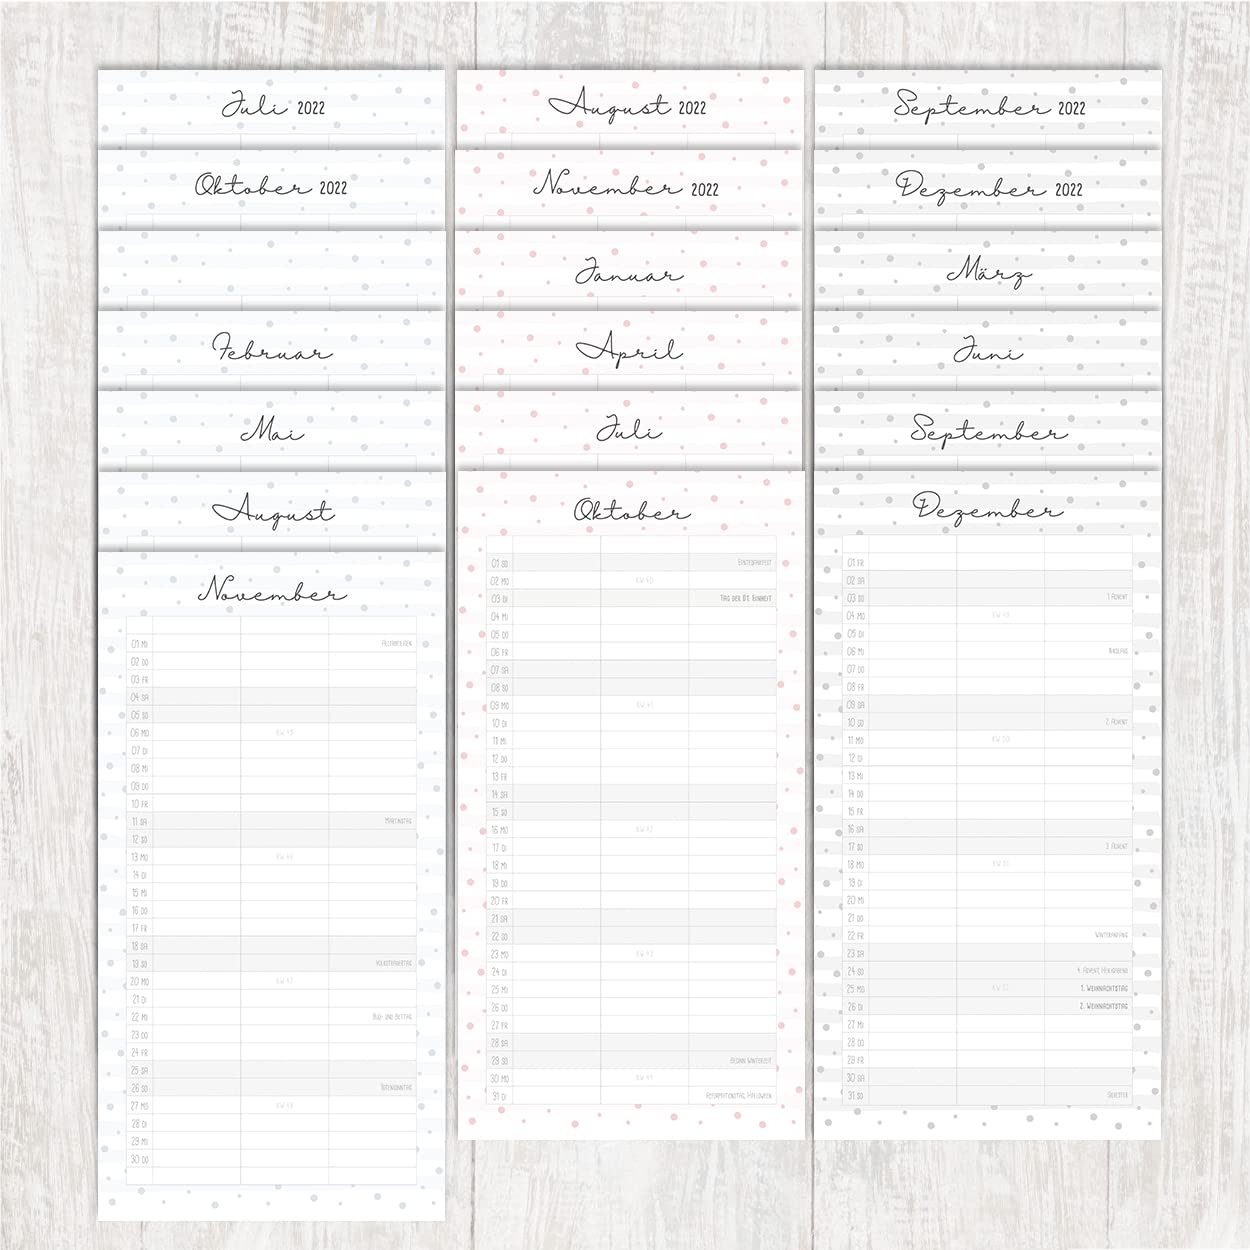 Juli 2022
August 2022
September 2022
Oktober 2022
November 2022
Dezember 2022
Januar
März
Februar
April
Juni
Mai
Juli
September
August
November
01 MI ALLERHEILIGEN
02 DO
03 FR
04 SA
05 SO
06 MO
07 DI
08 MI
09 DO
10 FR
11 SA MARTINSTAG
12 SO
13 MO
14 DI
15 MI
16 DO
17 FR
18 SA
19 SO VOLKSTRAUERTAG
20 MO KW 47
21 DI
22 MI BUß- UND BETTAG
23 DO
24 FR
25 SA
26 SO TOTENSONNTAG
27 MO KW 48
28 DI
29 MI
30 DO
Oktober
01 SO ERNTEDANKFEST
02 MO KW 40
03 DI TAG DER DT. EINHEIT
04 MI
05 DO
06 FR
07 SA
08 SO
09 MO KW 41
10 DI
11 MI
12 DO
13 FR
14 SA
15 SO
16 MO KW 42
17 DI
18 MI
19 DO
20 FR
21 SA
22 SO
23 MO KW 43
24 DI
25 MI
26 DO
27 FR
28 SA
29 SO BEGINN WINTERZEIT
30 MO KW 44
31 DI REFORMATIONSTAG, HALLOWEEN
Dezember
01 FR
02 SA
03 SO 1. ADVENT
04 MO KW 49
05 DI
06 MI NIKOLAUS
07 DO
08 FR
09 SA
10 SO 2. ADVENT
11 MO KW 50
12 DI
13 MI
14 DO
15 FR
16 SA
17 SO 3. ADVENT
18 MO KW 51
19 DI
20 MI
21 DO
22 FR WINTERANFANG
23 SA
24 SO 4. ADVENT, HEILIGABEND
25 MO KW 52 1. WEIHNACHTSTAG
26 DI 2. WEIHNACHTSTAG
27 MI
28 DO
29 FR
30 SA
31 SO SILVESTER